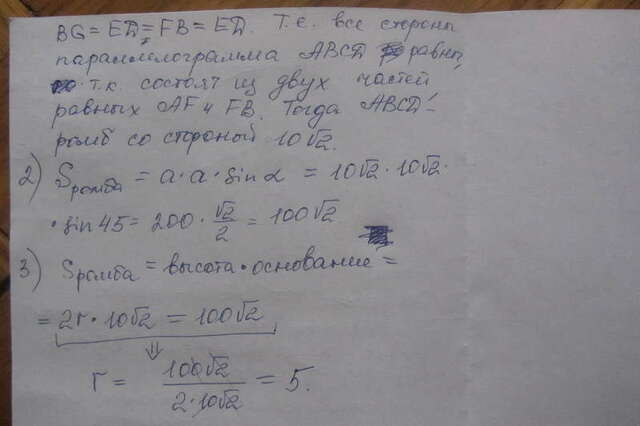 BG = ED = FB = ED. Т.е. все стороны
параллелограмма ABCD равны,
т.к. состоят из двух частей
равных AF и FB. Тогда ABCD –
ромб со стороной 10√2.
2) Sромба = a·a·sin α = 10√2·10√2·
·sin 45 = 200·√2/2 = 100√2
3) Sромба = высота·основание =
= 2r·10√2 = 100√2
⇓
r = 100√2/2·10√2 = 5.